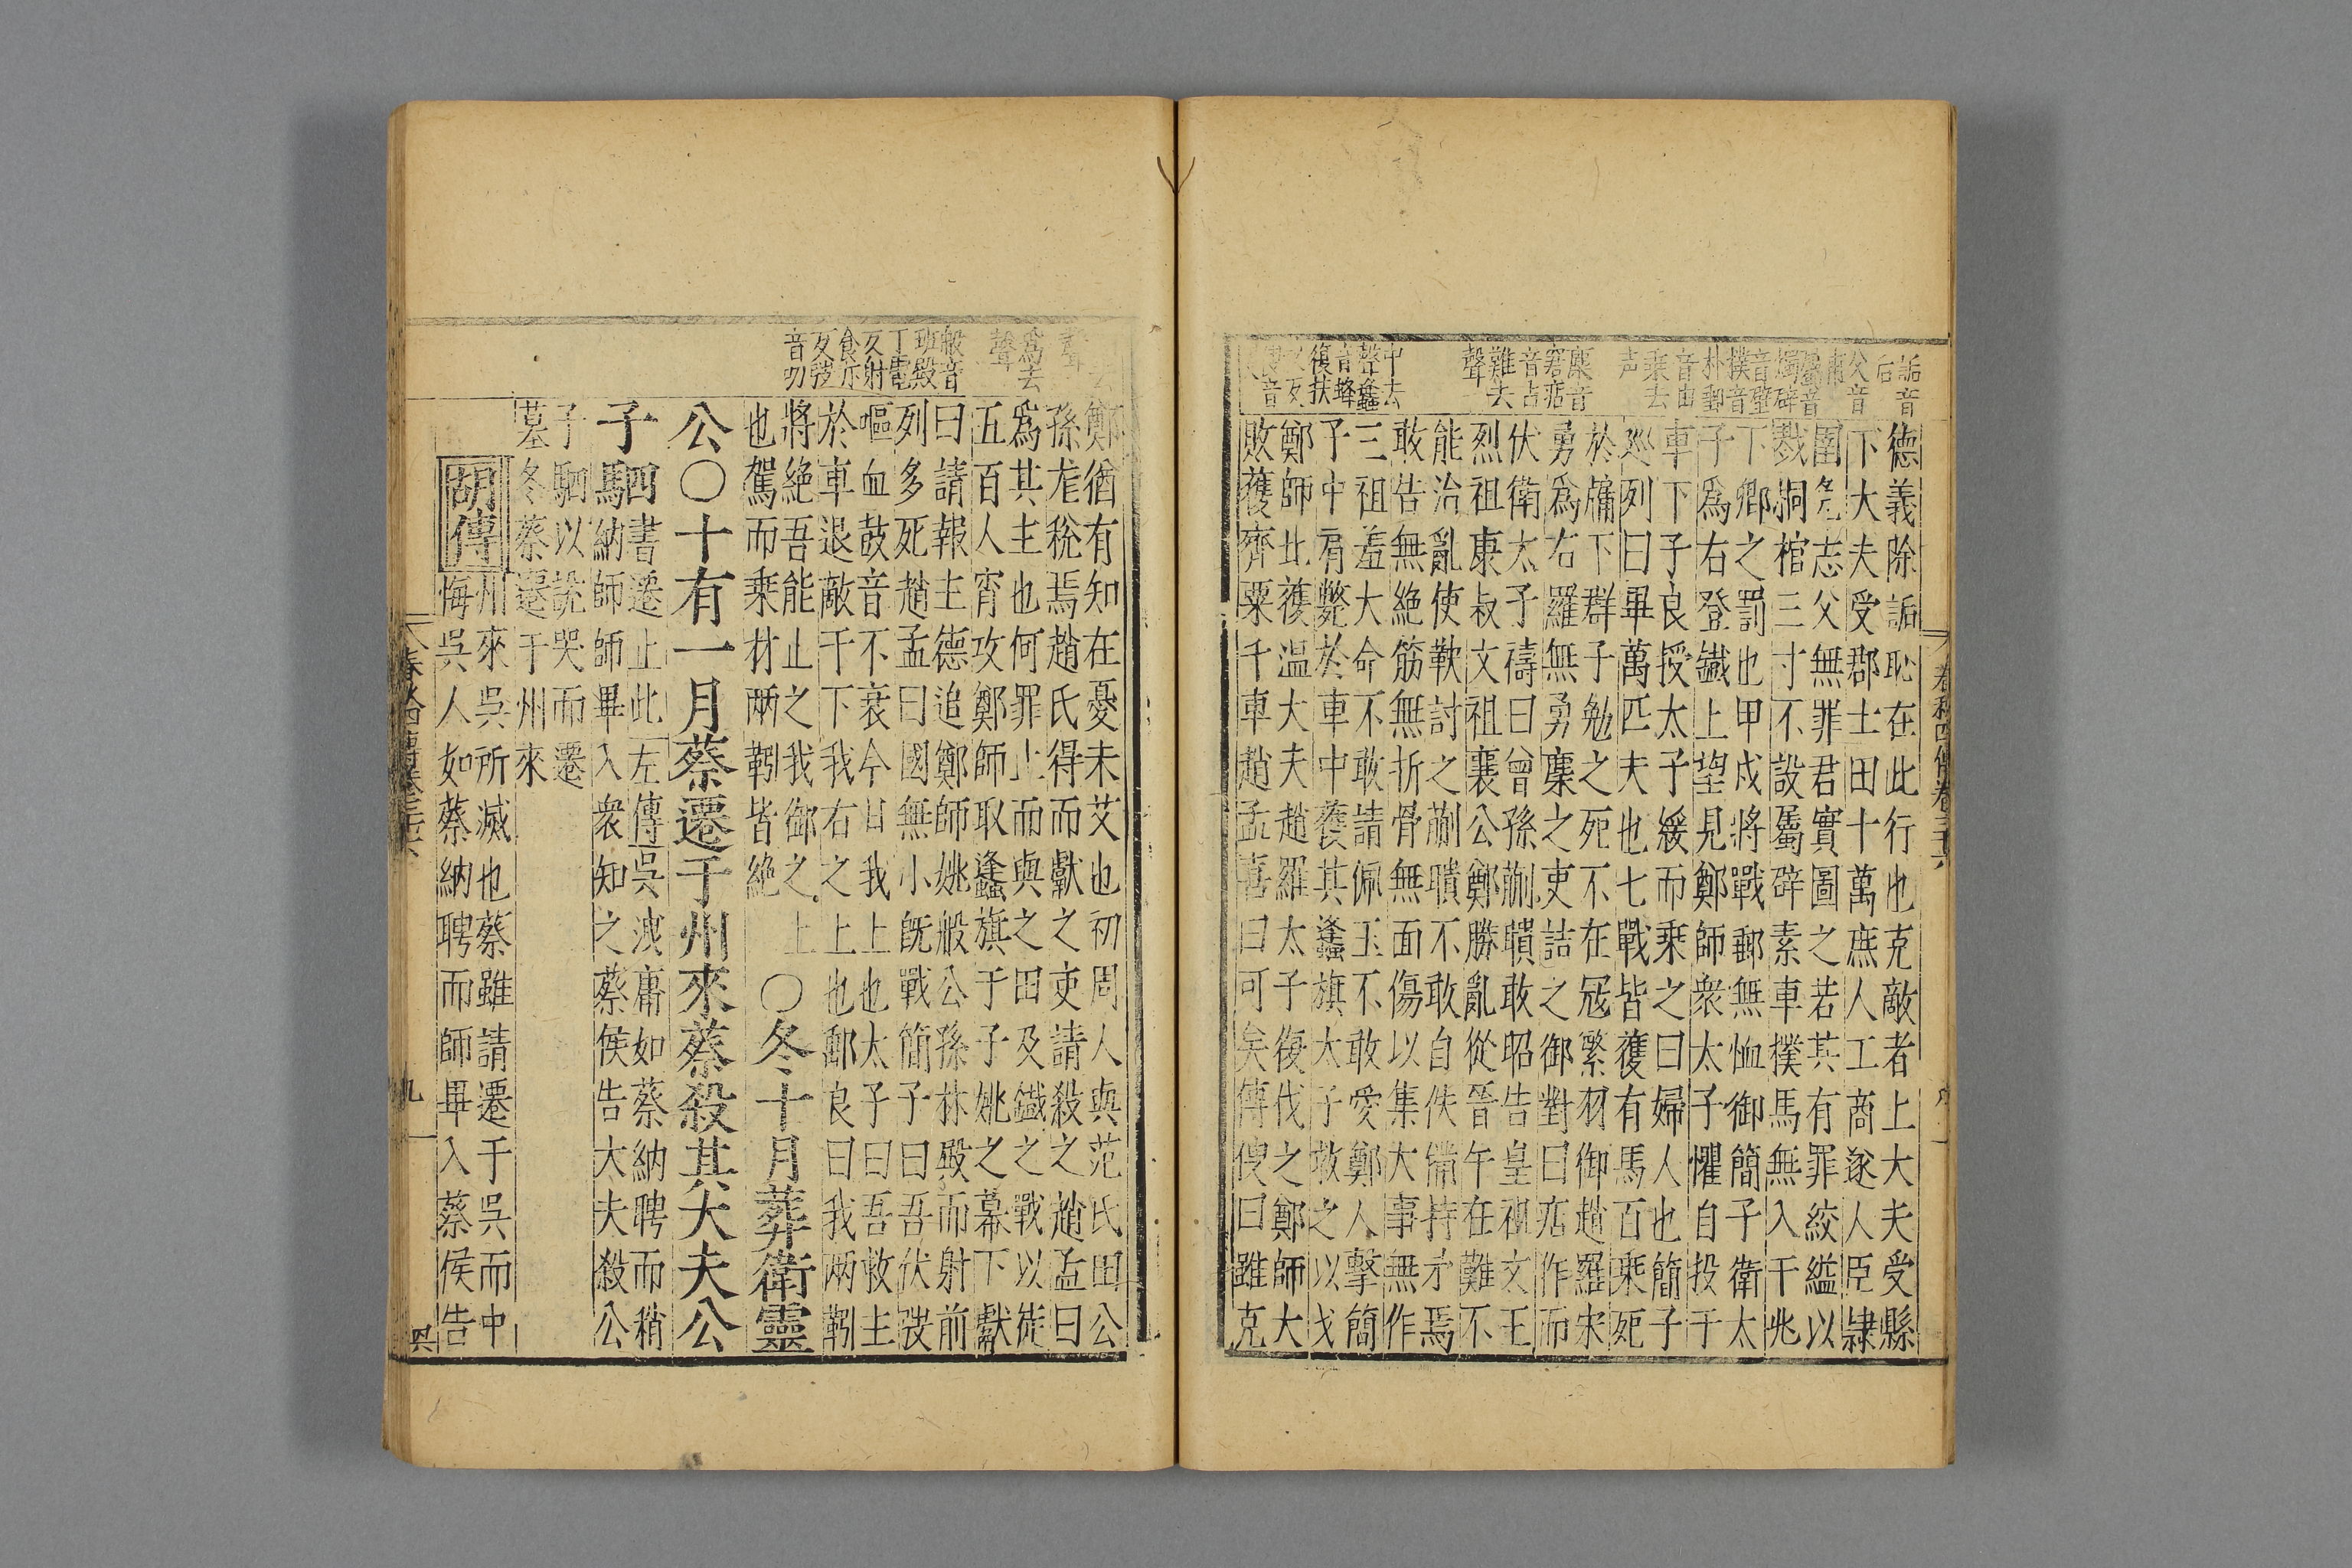 春秋四傳卷三十六
詬音
后
父音
甫屬音
燭辟
音壁
樸音
朴郵
音由
乘去
声
麇音
窘痁
音占
難去
聲
中去
聲蠭
音蜂
復扶
又反
德義除詬恥在此行也克敵者上大夫受縣
下大夫受郡士田十萬庶人工商遂人臣隷
圉免志父無罪君實圖之若其有罪絞縊以
戮桐棺三寸不設屬辟素車樸馬無入于兆
下卿之罰也甲戌將戰郵無恤御簡子衛太
子爲右登鐵上望見鄭師衆太子懼自投于
車下子良授太子綏而乘之曰婦人也簡子
巡列曰畢萬匹夫也七戰皆獲有馬百乘死
於牖下群子勉之死不在冦繁羽御趙羅宋
勇爲右羅無勇麇之吏詰之御對曰痁作而
伏衛太子禱曰曾孫蒯聵敢昭告皇祖文王
烈祖康叔文祖襄公鄭勝亂從晉午在難不
能治亂使鞅討之蒯聵不敢自佚備持矛焉
敢告無絶筋無折骨無面傷以集大事無作
三祖羞大命不敢請佩玉不敢愛鄭人擊簡
子中肩斃於車中獲其蠭旗太子救之以戈
鄭師北獲温大夫趙羅太子復伐之鄭師大
敗獲齊粟千車趙孟喜曰可矣傅傁曰雖克
去
聲
爲去
聲
般音
班殿
丁電
反射
食亦
反弢
音叨
鄭猶有知在憂未艾也初周人與范氏田公
孫尨稅焉趙氏得而獻之吏請殺之趙孟曰
爲其主也何罪止而與之田及鐵之戰以徒
五百人宵攻鄭師取蠭旗于子姚之幕下獻
曰請報主德追鄭師姚般公孫林殿而射前
列多死趙孟曰國無小旣戰簡子曰吾伏弢
嘔血鼓音不衰今日我上也太子曰吾救主
於車退敵于下我右之上也郵良曰我兩靷
將絶吾能止之我御之上
也駕而乘材兩靷皆絶
○冬十月葬衛靈
公○十有一月蔡遷于州來蔡殺其大夫公
子駟書遷止此左傳吳洩庸如蔡納聘而稍
納師師畢入衆知之蔡侯告大夫殺公
子駟以說哭而遷
墓冬蔡遷于州來
胡傳
州來吳所滅也蔡雖請遷于吳而中
悔吳人如蔡納聘而師畢入蔡侯告
春秋四傳卷三十六
九